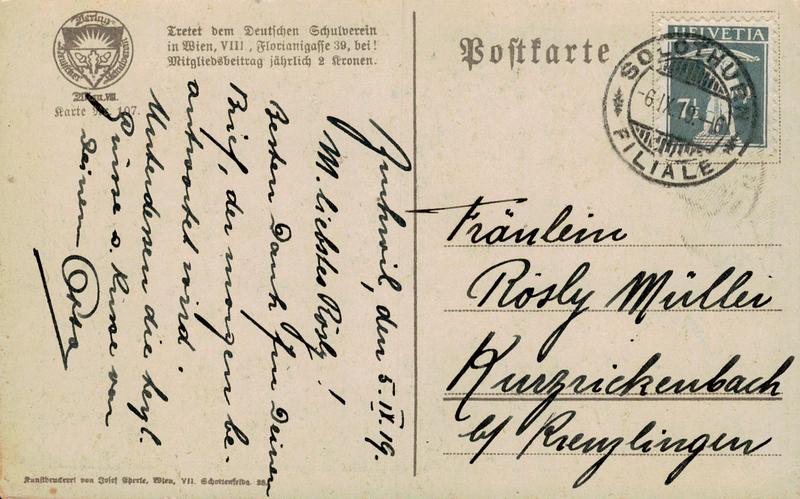 Verlag
Deutscher Schulverein
Wien, VIII.
Karte Nr. 107.
Tretet dem Deutschen Schulverein
in Wien, VIII, Florianigasse 39, bei!
Mitgliedsbeitrag jährlich 2 Kronen.
Postkarte
HELVETIA
7½
SOLOTHURN
-6.IX.19.-6
FILIALE
den 5. IX. 19.
M. liebstes Rösly!
Besten Dank für Deinen
Brief, der morgen be-
antwortet wird.
Unterdessen die herzl.
Grüsse u. Küsse von
Deinem
Fräulein
Rösly Müller
Kurzrickenbach
b/ Kreuzlingen
Kunstdruckerei von Josef Eberle, Wien, VII. Schottenfeldg. 38.